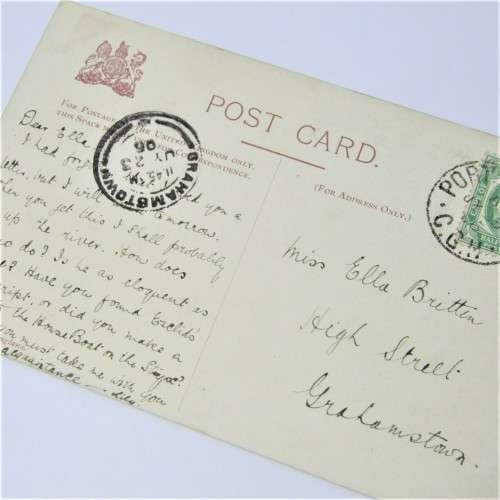 POST CARD.
FOR POSTAGE IN THE UNITED KINGDOM ONLY,
THIS SPACE MAY BE USED FOR CORRESPONDENCE.
(FOR ADDRESS ONLY.)
GRAHAMSTOWN
1145 AM
JY 23
06
PORT
C.G.H.
Dear Ella
I had you a
but I will tomorrow.
you get this I shall probably
up the river. How does
do? Is he as eloquent as
Have you found Euclid's
or did you make a
the House Boat on the Styx?
must take me with you
acquaintance
Miss Ella Britten
High Street
Grahamstown.